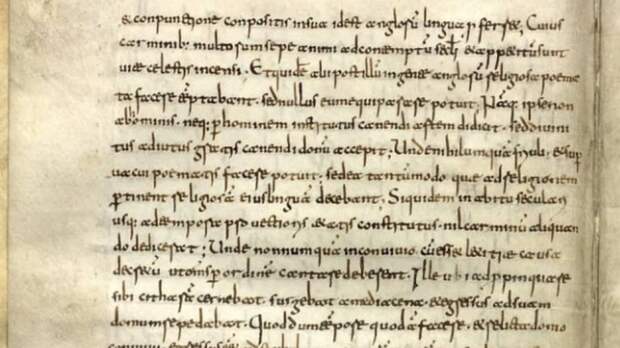 & conpunctione conpositis insua idest anglorū lingua p̱ferret, Cuius
carminib; multorum sepe animi adcontemptū secłi & appetitum sunt
uitae celestis incensi. Et quidē alii post illū ingente anglorū religiosa poema
ta facere temptabant. sed nullus eum equiparare potuit. Nāq; ipse non
ab hominis. neq; p̱ hominem institutus canendi artem didicit. sed diuini
tus adiutus gratis canendi donū accepit; Unde nihil umquā friuoli. & sup̱
uacui poematis facere potuit. sed ea tantūmodo quae ad religionem
p̱tinent religiosā eius linguā decebant. Siquidem inabitu seculari
usq; ad tempora prouectioris etatis constitutus. nil carminū aliquan
do dedicerat; Unde nonnumquā inconuiuio cū esset letitiae causa
decretū ut omns̄ per ordine cantare deberent. Ille ubi adp̱pinquare
sibi citharā cernebat. surgebat a media cena & egressus adsuam
domum repedabat. Quod dum tempore quodā faceret. & relicta domo
conuiuii egressus